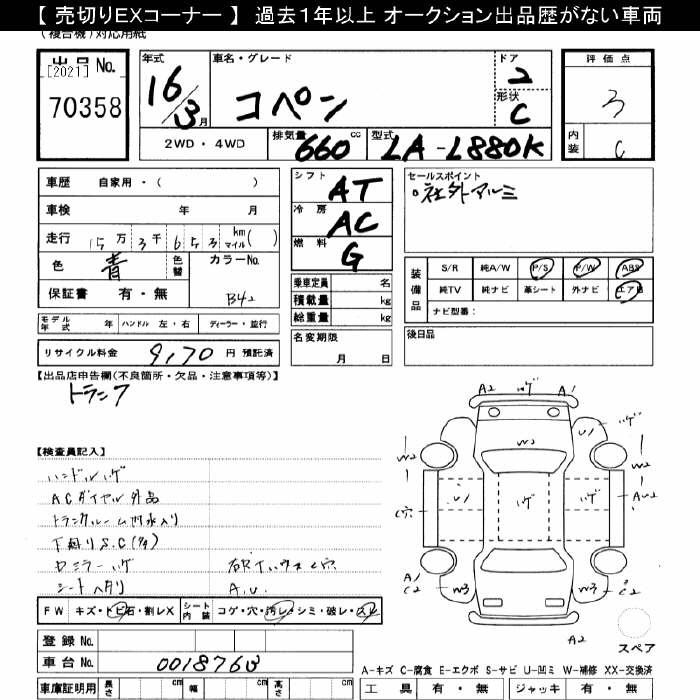 【 売切りEXコーナー 】 過去1年以上 オークション出品歴がない車両
(複合機)対応用紙
出品 No.
[2021]
70358
年式
16/3月
車名・グレード
コペン
ドア
2
形状
C
評価点
3
内装
C
2WD・4WD
排気量 660 cc
型式 LA-L880K
車歴 自家用・( )
車検 年 月
走行 15万 3千 6 5 3 km マイル ( )
色 青 色替 カラーNo.
保証書 有・無 B42
シフト AT
冷房 AC
燃料 G
セールスポイント
○社外アルミ
乗車定員 名
積載量 kg
総重量 kg
装備品
S/R 純A/W P/S P/W ABS
純TV 純ナビ 革シート 外ナビ エアB
ナビ型番:
モデル年式 年 ハンドル 左・右 ディーラー・並行
リサイクル料金 9,170 円 預託済
名変期限
月 日
後日品
【出品店申告欄(不良箇所・欠品・注意事項等)】
トランク
【検査員記入】
ハンドルハゲ
ACダイヤル外品
トランクルーム内水入り
下廻りS.C
ハゲ
シートヘタリ
A.U.
A2 ハゲ A1
U1 ハゲ
W2 W2
U1 ハゲ ハゲ AU2
C穴
A1
C2 W3 W3 C2
A2
スペア
FW キズ・トビ石・割レX シート内装 コゲ・穴・汚レ・シミ・破レ・スレ
登録 No.
車台 No. 0018763
車庫証明用 長さ cm 幅 cm 高さ cm
A-キズ C-腐食 E-エクボ S-サビ U-凹ミ W-補修 XX-交換済
工具 有・無 ジャッキ 有・無